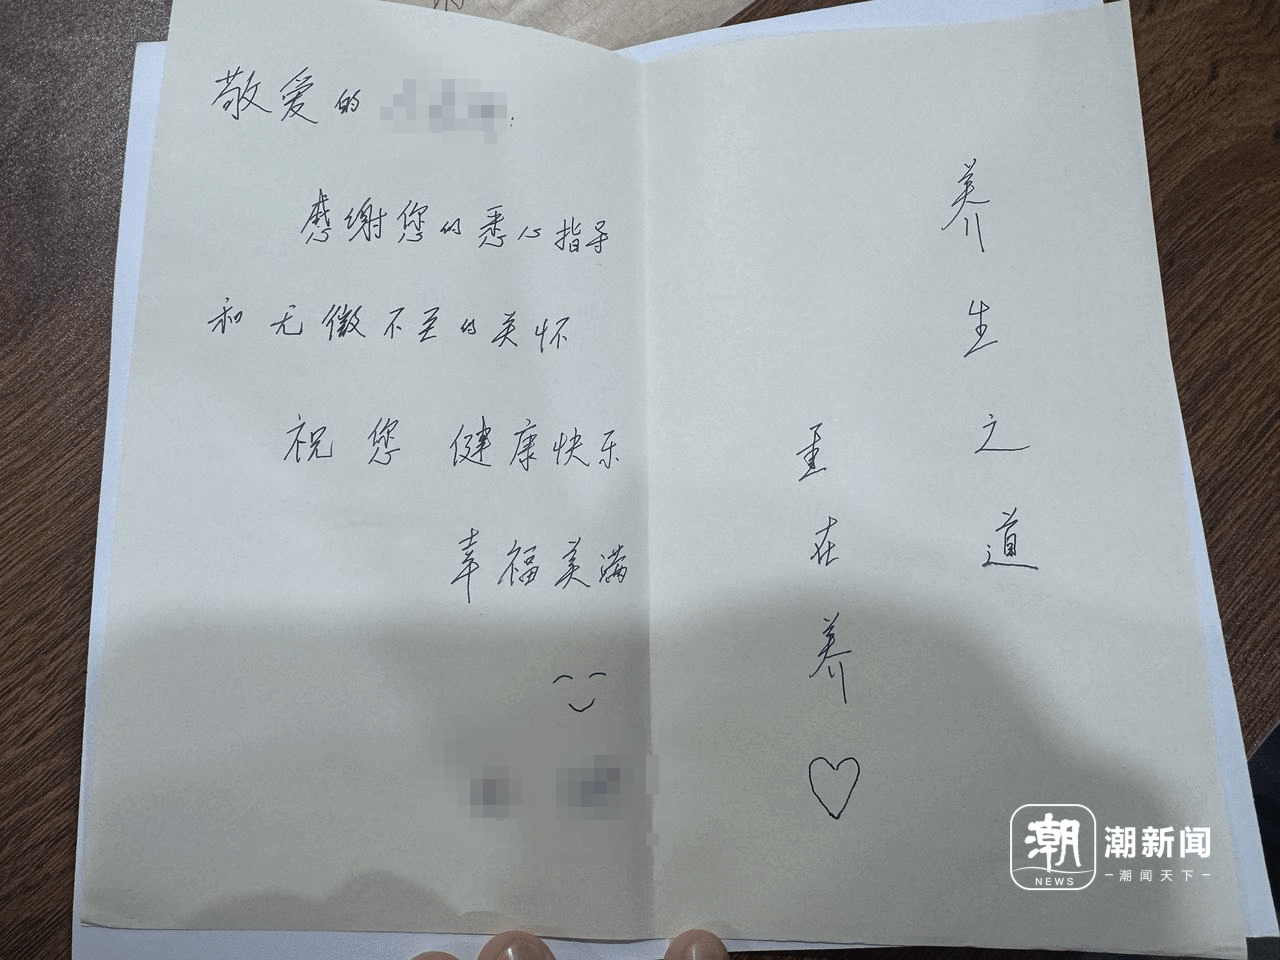 敬爱的 :
感谢您的悉心指导
和无微不至的关怀
祝您 健康快乐
幸福美满
养生之道
重在养♡
潮 NEWS
潮新闻
潮闻天下